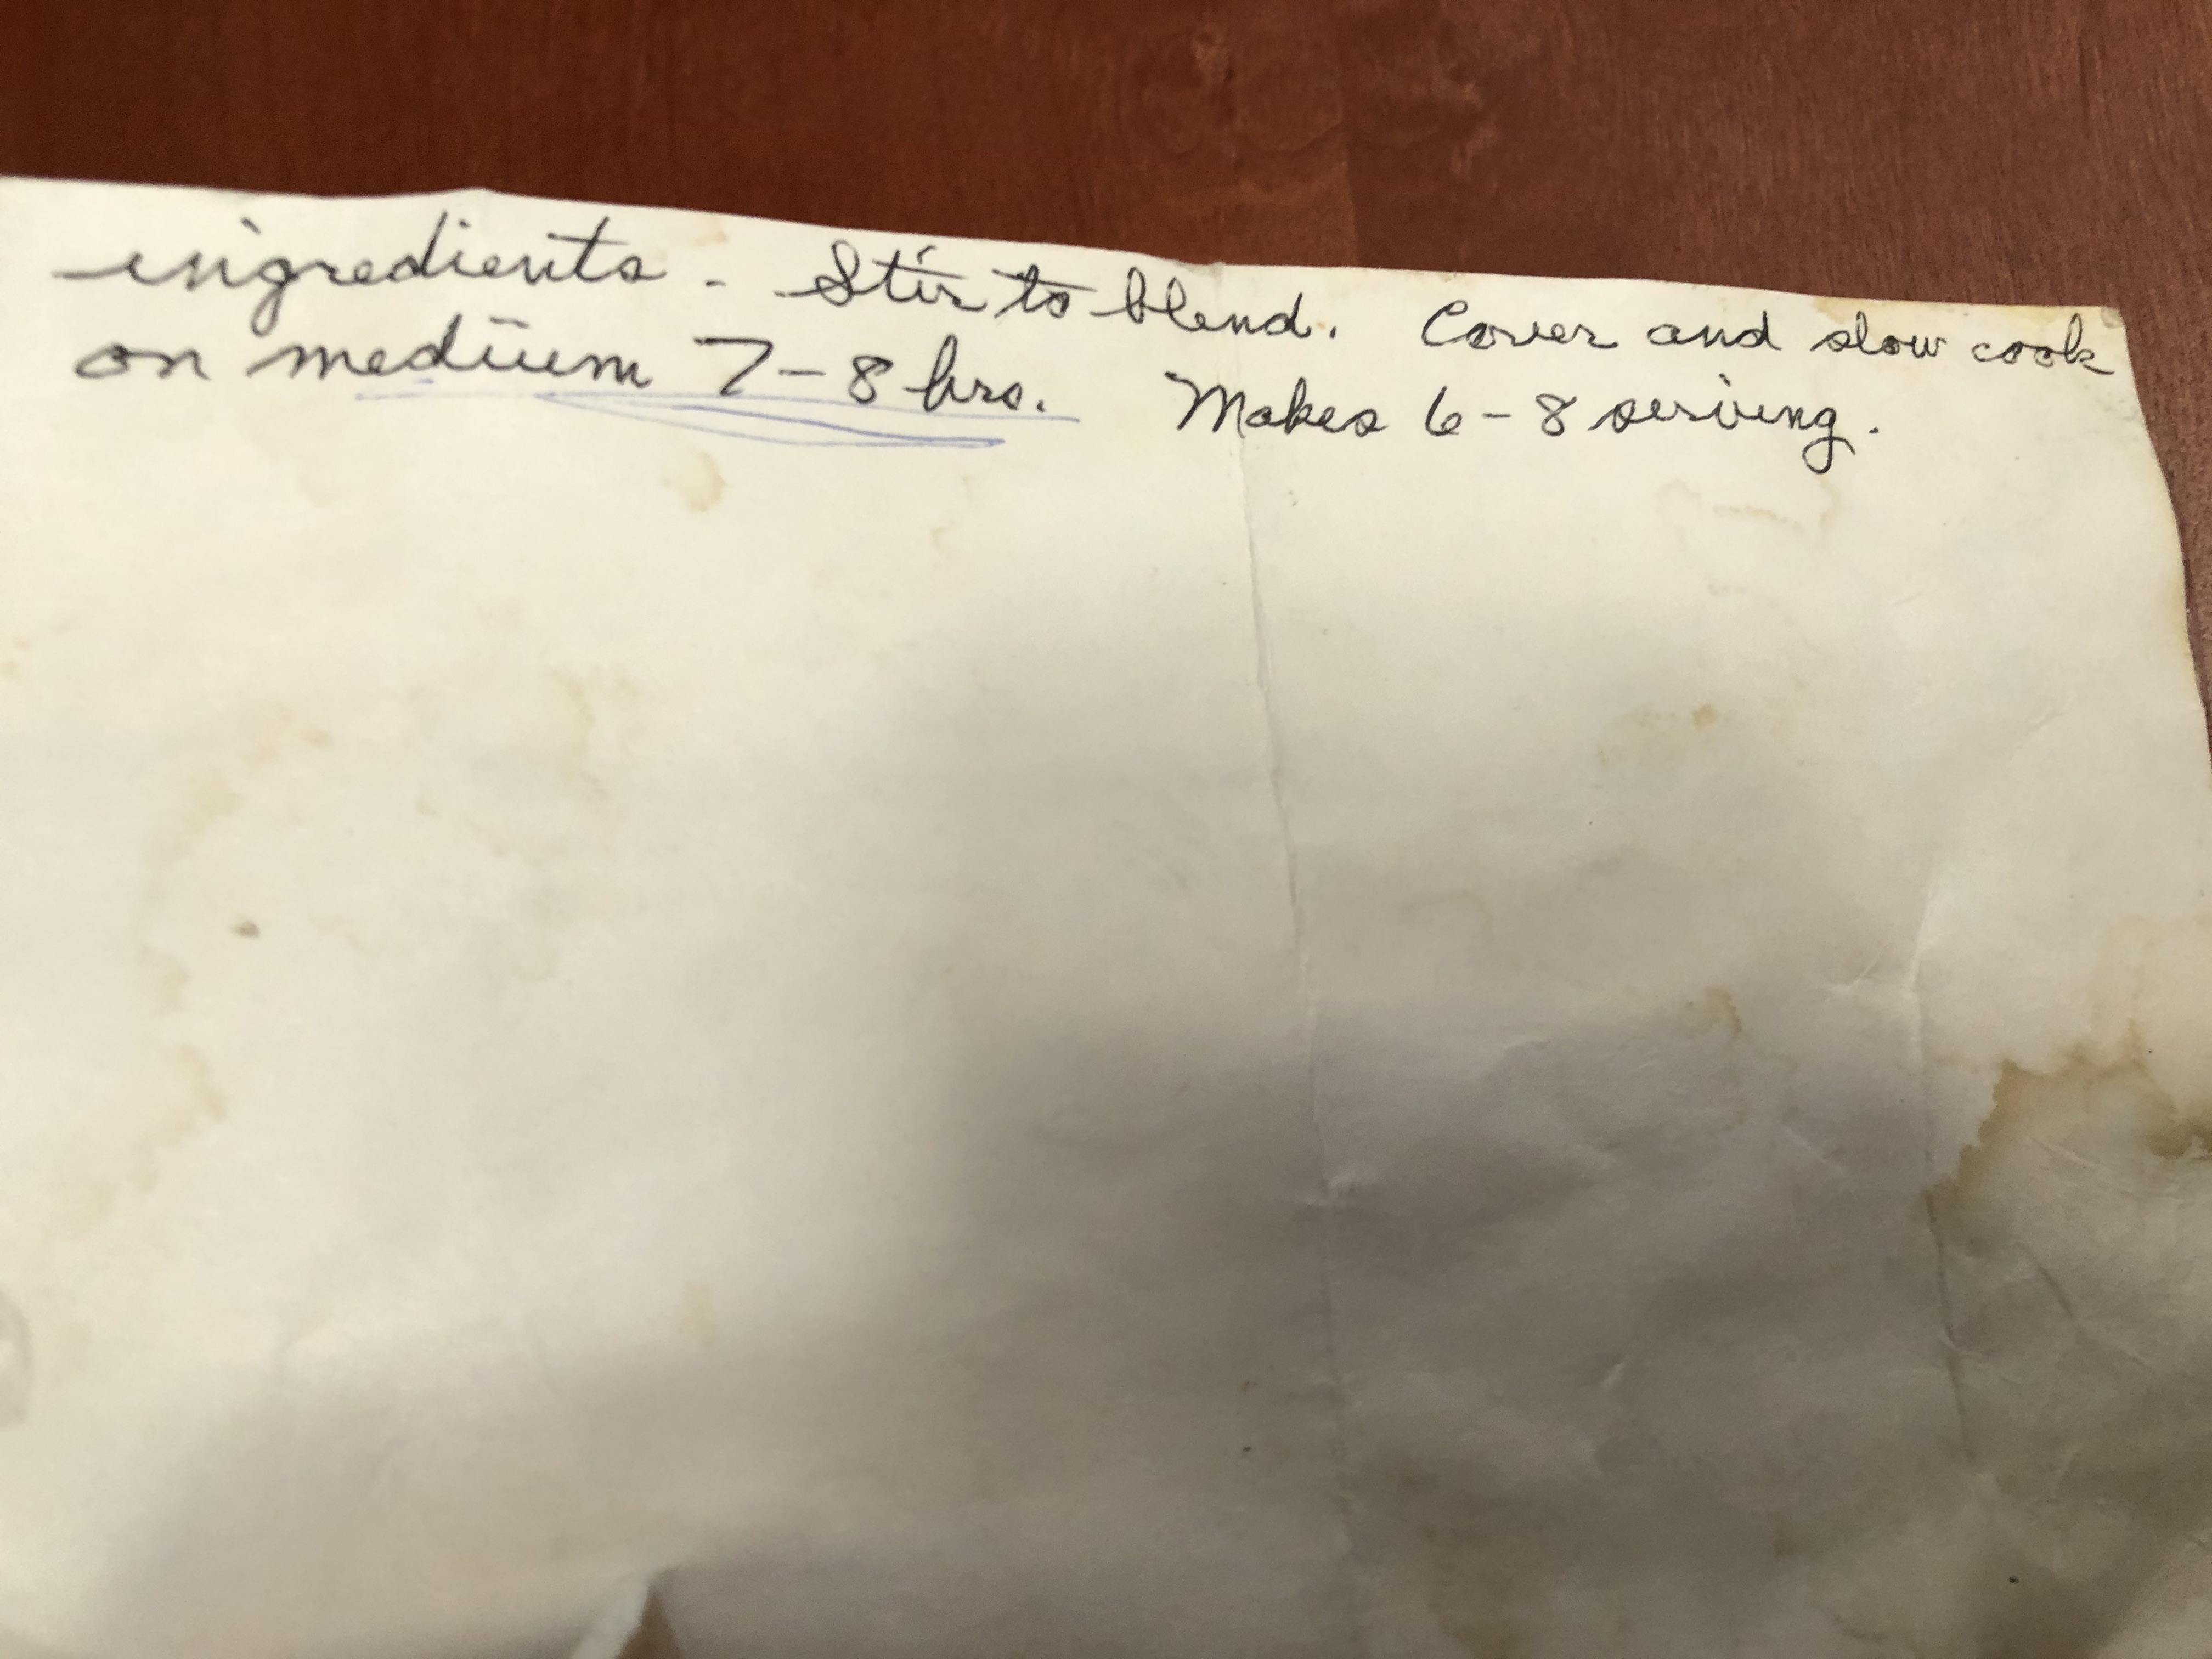 ingredients. Stir to blend. Cover and slow cook
on medium 7-8 hrs. Makes 6-8 serving.